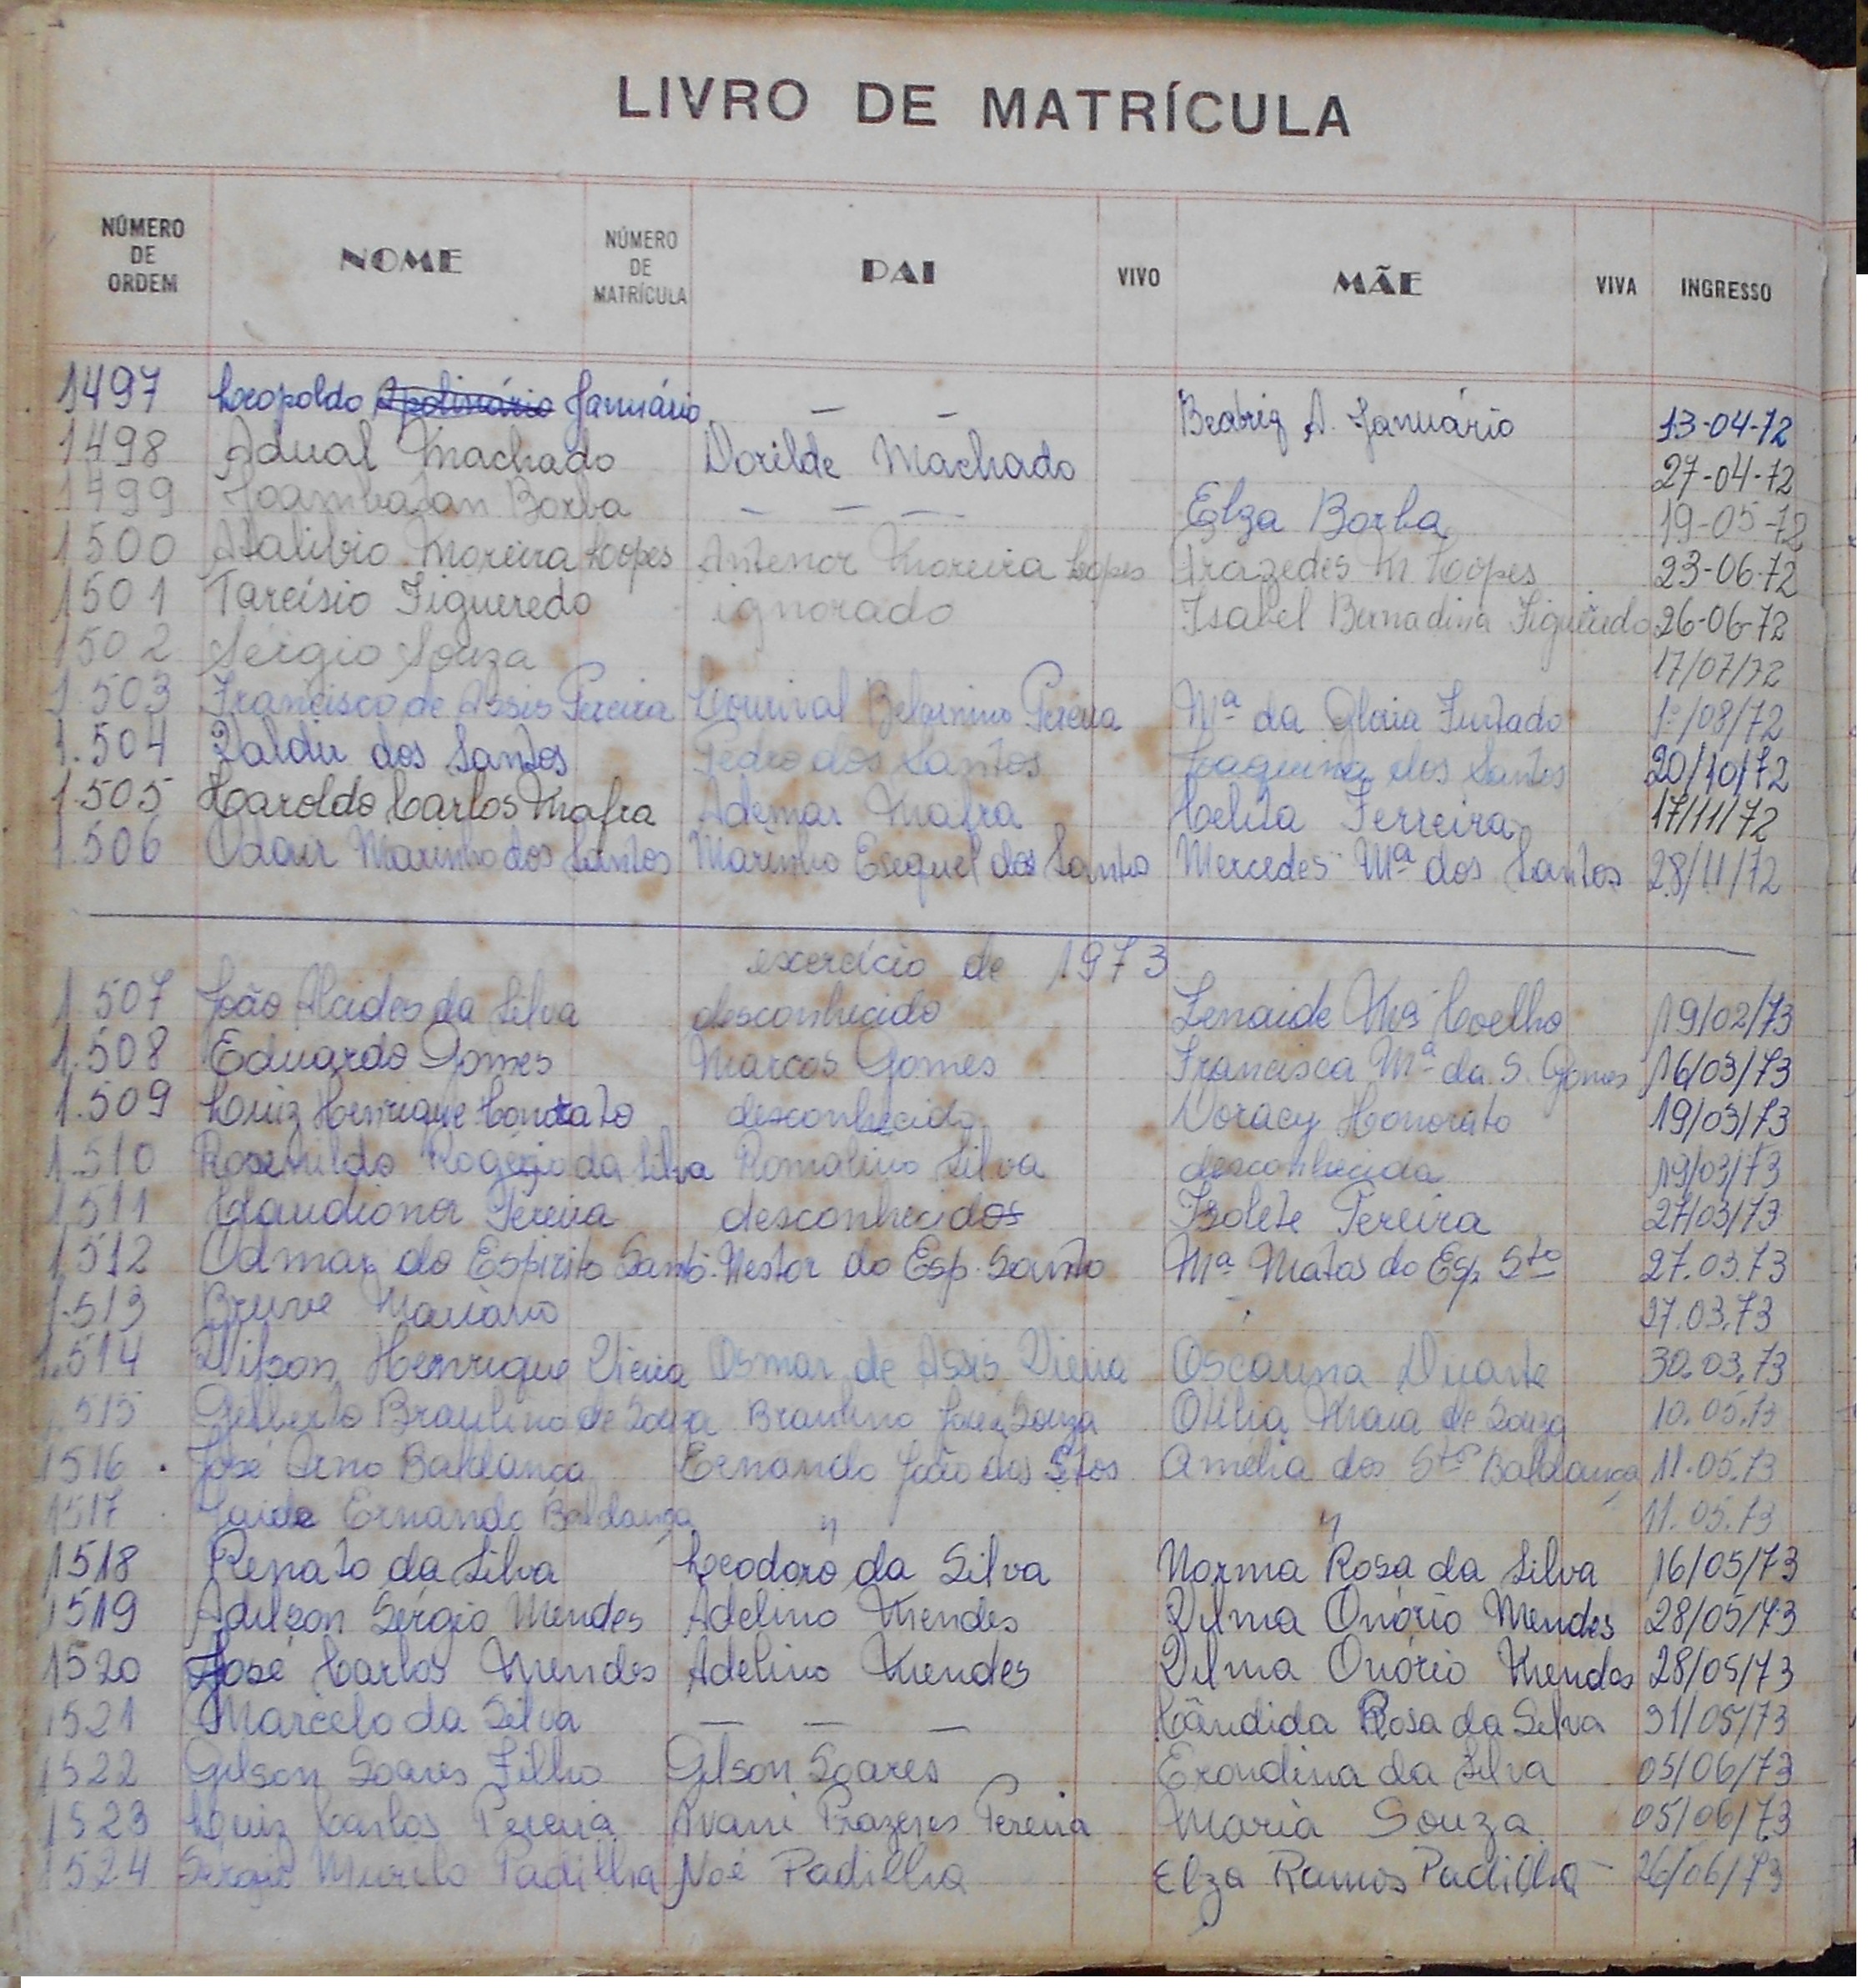 LIVRO DE MATRÍCULA
NÚMERO DE ORDEM NOME NÚMERO DE MATRÍCULA PAI VIVO MÃE VIVA INGRESSO
1497 Leopoldo Apolinário Januário — — Beatriz A. Januário 13-04-72
1498 Adual Machado Dorilde Machado 27-04-72
1499 Joambatan Borba — — — Elza Borba 19-05-72
1500 Atalibio Moreira Lopes Antenor Moreira Lopes Prazedes M Lopes 23-06-72
1501 Tarcísio Figueredo ignorado Isabel Bernadina Figueiredo 26-06-72
1502 Sérgio Souza 17/07/72
1.503 Francisco de Assis Pereira Lourival Belarmino Pereira Mª da Gloria Furtado 1º/08/72
1.504 Valdir dos Santos Pedro dos Santos Joaquina dos Santos 20/10/72
1.505 Haroldo Carlos Mafra Ademar Mafra Celita Ferreira 17/11/72
1.506 Odair Marinho dos Santos Marinho Esequel dos Santos Mercedes Mª dos Santos 28/11/72
exercício de 1973
1.507 João Alcides da Silva desconhecido Zenaide Mª Coelho 19/02/73
1.508 Eduardo Gomes Marcos Gomes Francisca Mª da S. Gomes 16/03/73
1.509 Luiz Henrique Honorato desconhecido Doracy Honorato 19/03/73
1.510 Rosenildo Rogério da Silva Romalino Silva desconhecida 19/03/73
1511 Claudionor Pereira desconhecidos Isolete Pereira 27/03/73
1512 Odmar do Espírito Santo Nestor do Esp. Santo Mª Matos do Esp. Stº 27.03.73
1.513 Mariano 27.03.73
1.514 Vilson Henrique Vieira Osmar de Assis Vieira Oscarina Duarte 30.03.73
1515 Gilberto Braulino de Souza Braulino José Souza Otilia Maria de Souza 10.05.73
1516 José Arno Baldança Ernando João dos Stos Amélia dos Stos Baldança 11.05.73
1517 Ernando Baldança " " 11.05.73
1518 Renato da Silva Leodoro da Silva Norma Rosa da Silva 16/05/73
1519 Adilson Sérgio Mendes Adelino Mendes Vilma Onório Mendes 28/05/73
1520 José Carlos Mendes Adelino Mendes Vilma Onório Mendes 28/05/73
1521 Marcelo da Silva — — — Cândida Rosa da Silva 31/05/73
1522 Gilson Soares Filho Gilson Soares Erondina da Silva 05/06/73
1523 Luiz Carlos Pereira Avani Prazeres Pereira Maria Souza 05/06/73
1524 Sérgio Murilo Padilha Noé Padilha Elza Ramos Padilha 26/06/73